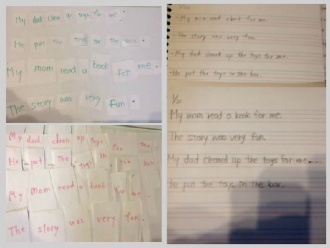 My dad clean up the toys for me.
He put the toys in the box.
My mom read a book for me.
The story was very fun.
My dad clean up the toys
He put the
My mom read a book for me.
The story was very fun.
You
My mom read a book for me.
The story was very fun.
My dad cleand up the toys for me.
He put the toys in the box.
You
My mom read a book for me.
The story was very fun.
My dad cleand up the toys for me.
He put the toys in the box.